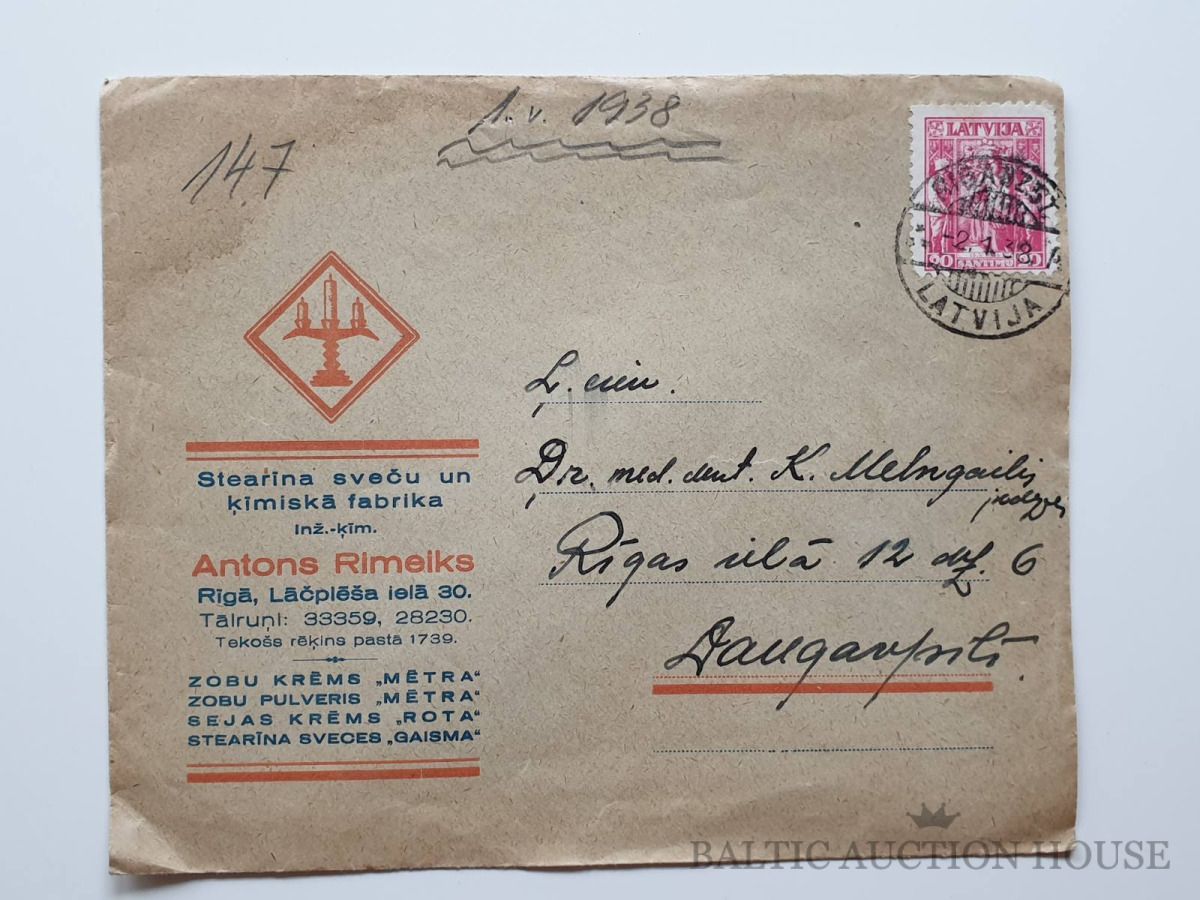 1. v. 1938
147
LATVIJA
20 SANTIMU 20
-2. 1. 38.
LATVIJA
Stearīna sveču un
ķīmiskā fabrika
Inž.-ķīm.
Antons Rimeiks
Rīgā, Lāčplēša ielā 30.
Tālruņi: 33359, 28230.
Tekošs rēķins pastā 1739.
ZOBU KRĒMS „MĒTRA“
ZOBU PULVERIS „MĒTRA“
SEJAS KRĒMS „ROTA“
STEARĪNA SVECES „GAISMA“
Ļ. cien.
Dr. med. dent. K. Melngailis
Rīgas ielā 12 dz. 6
Daugavpilī.
BALTIC AUCTION HOUSE